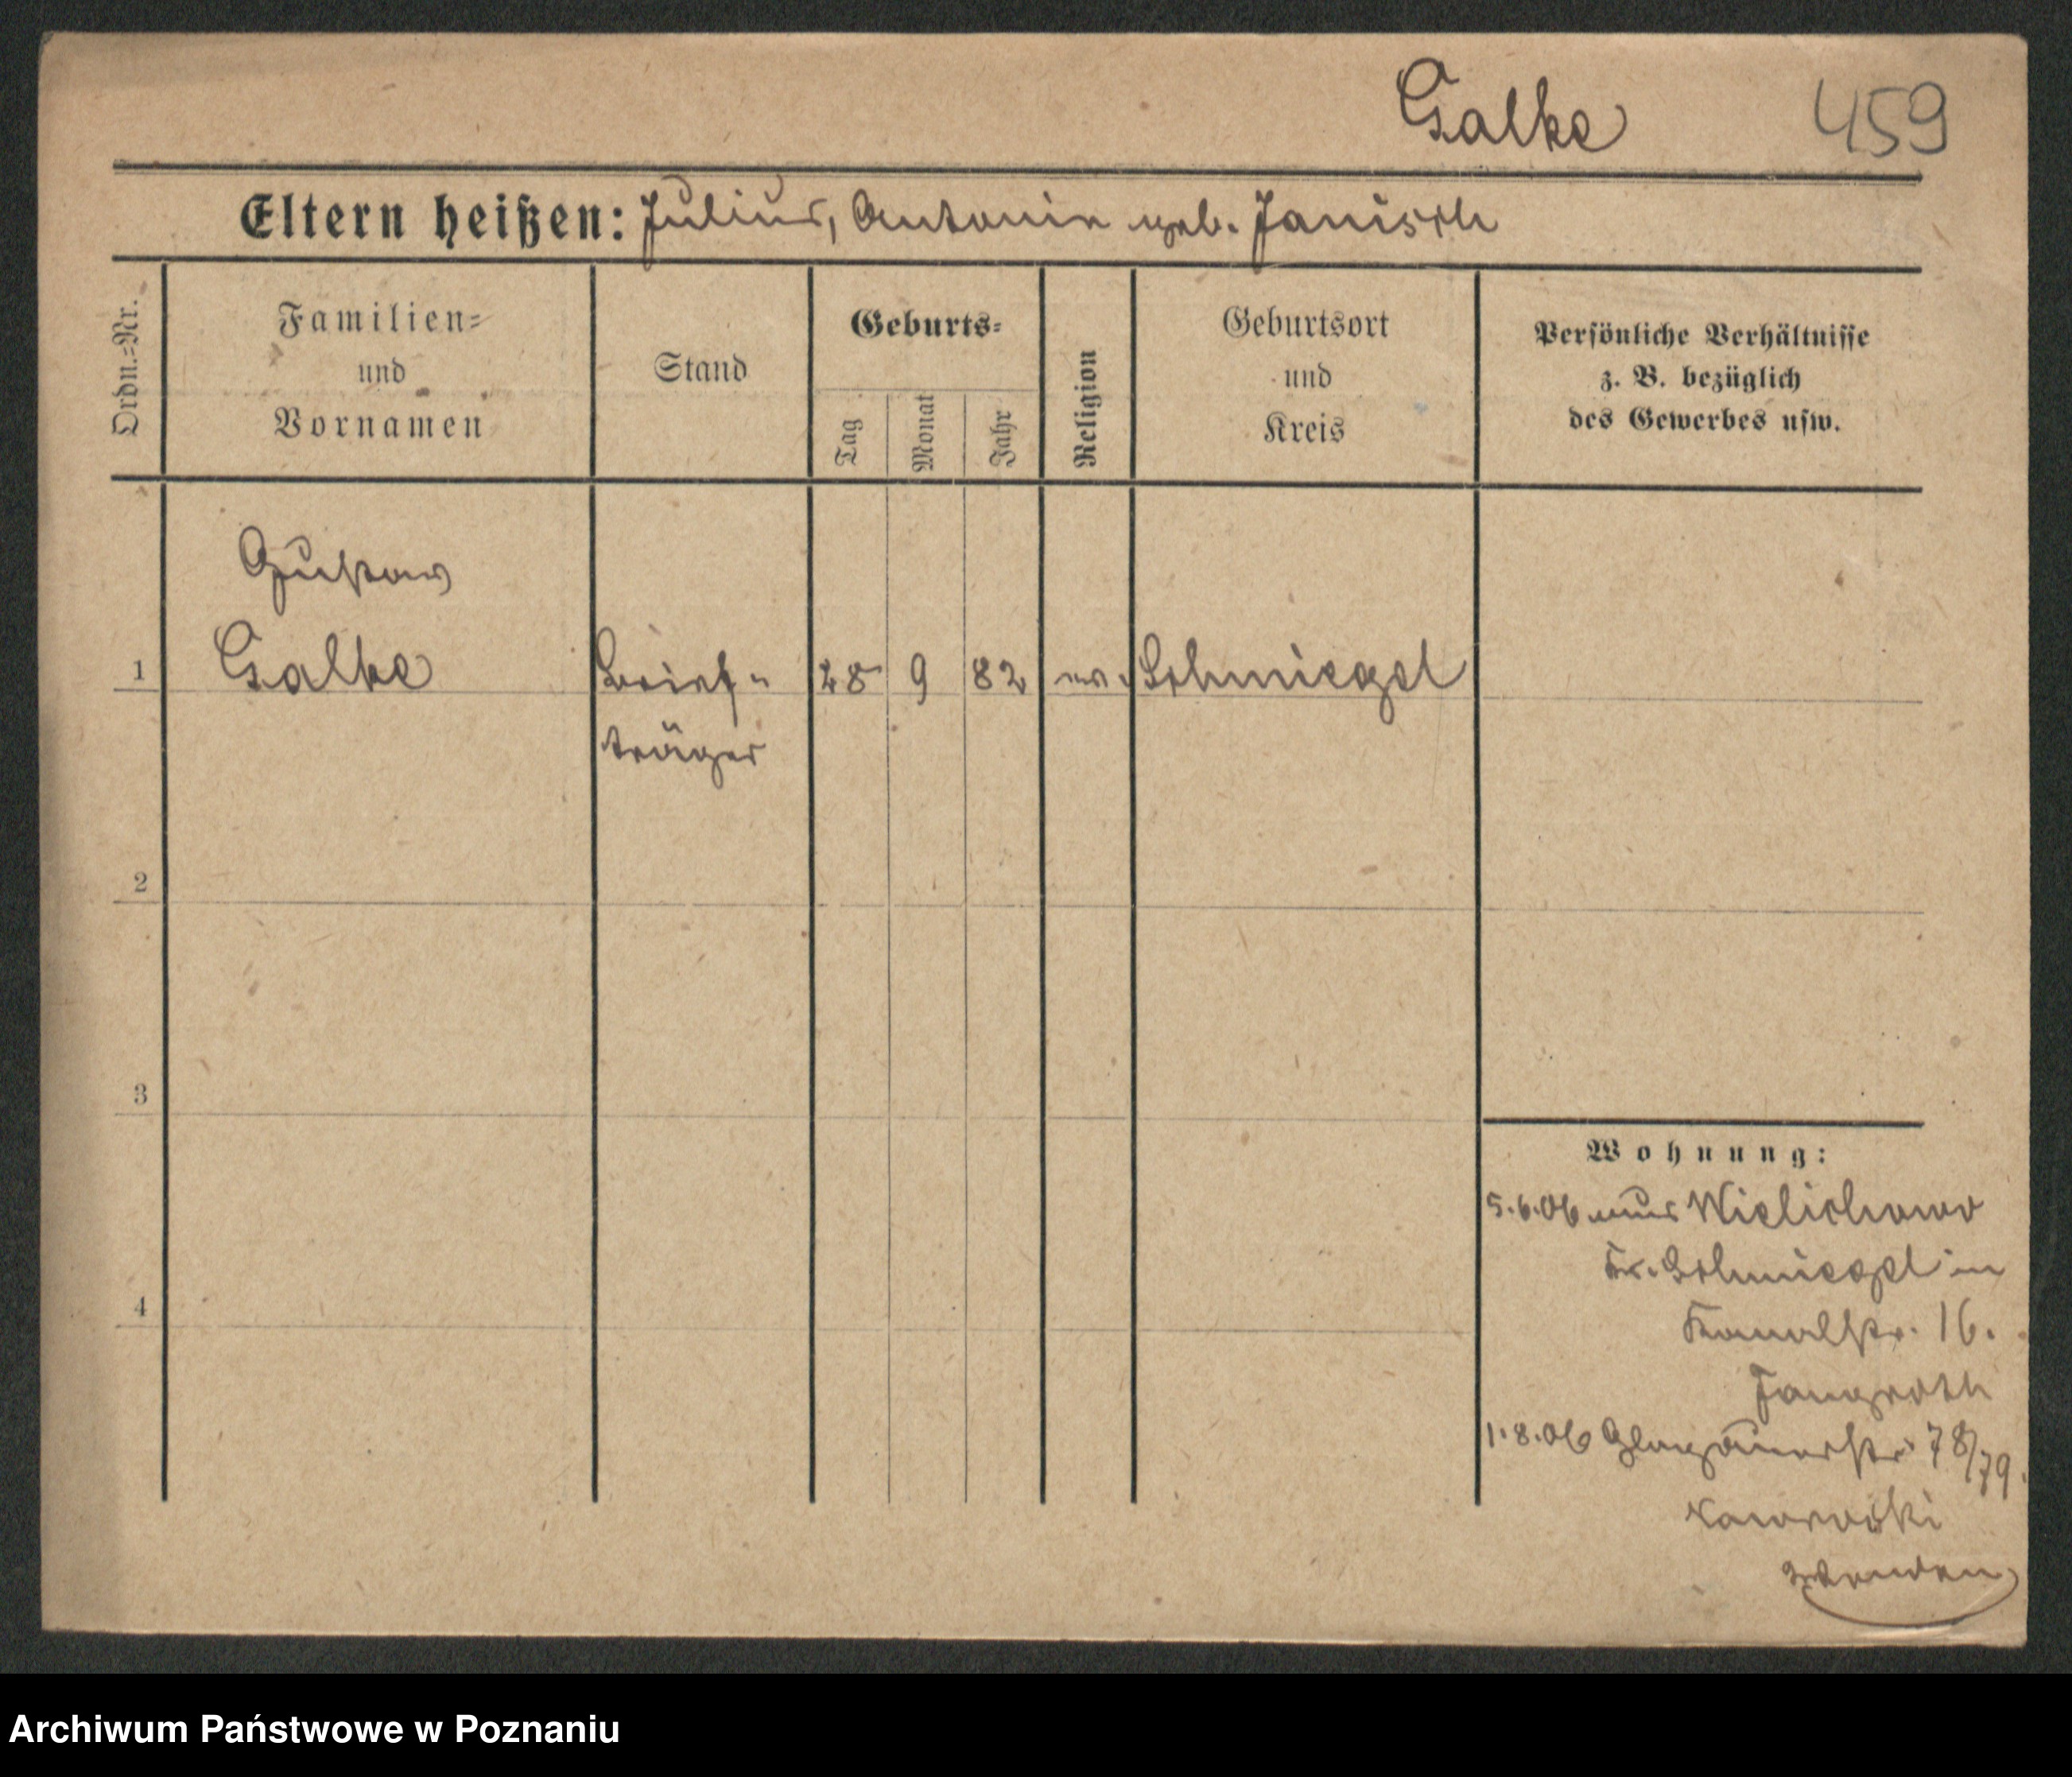 Galke 459
Eltern heißen: Julius, Antonie geb. Janisch
Ordn.=Nr.
Familien=
und
Vornamen
Stand
Geburts=
Tag
Monat
Jahr
Religion
Geburtsort
und
Kreis
Persönliche Verhältnisse
z. B. bezüglich
des Gewerbes usw.
Gustav
1 Galke Brief= 28 9 82 ev. Schmiegel
träger
2
3
4
Wohnung:
5.6.06 aus Wielichowo
Kr. Schmiegel in
Kanalstr. 16.
1.8.06 Glogauerstr. 78/79.
Kaworski
wenden
Archiwum Państwowe w Poznaniu